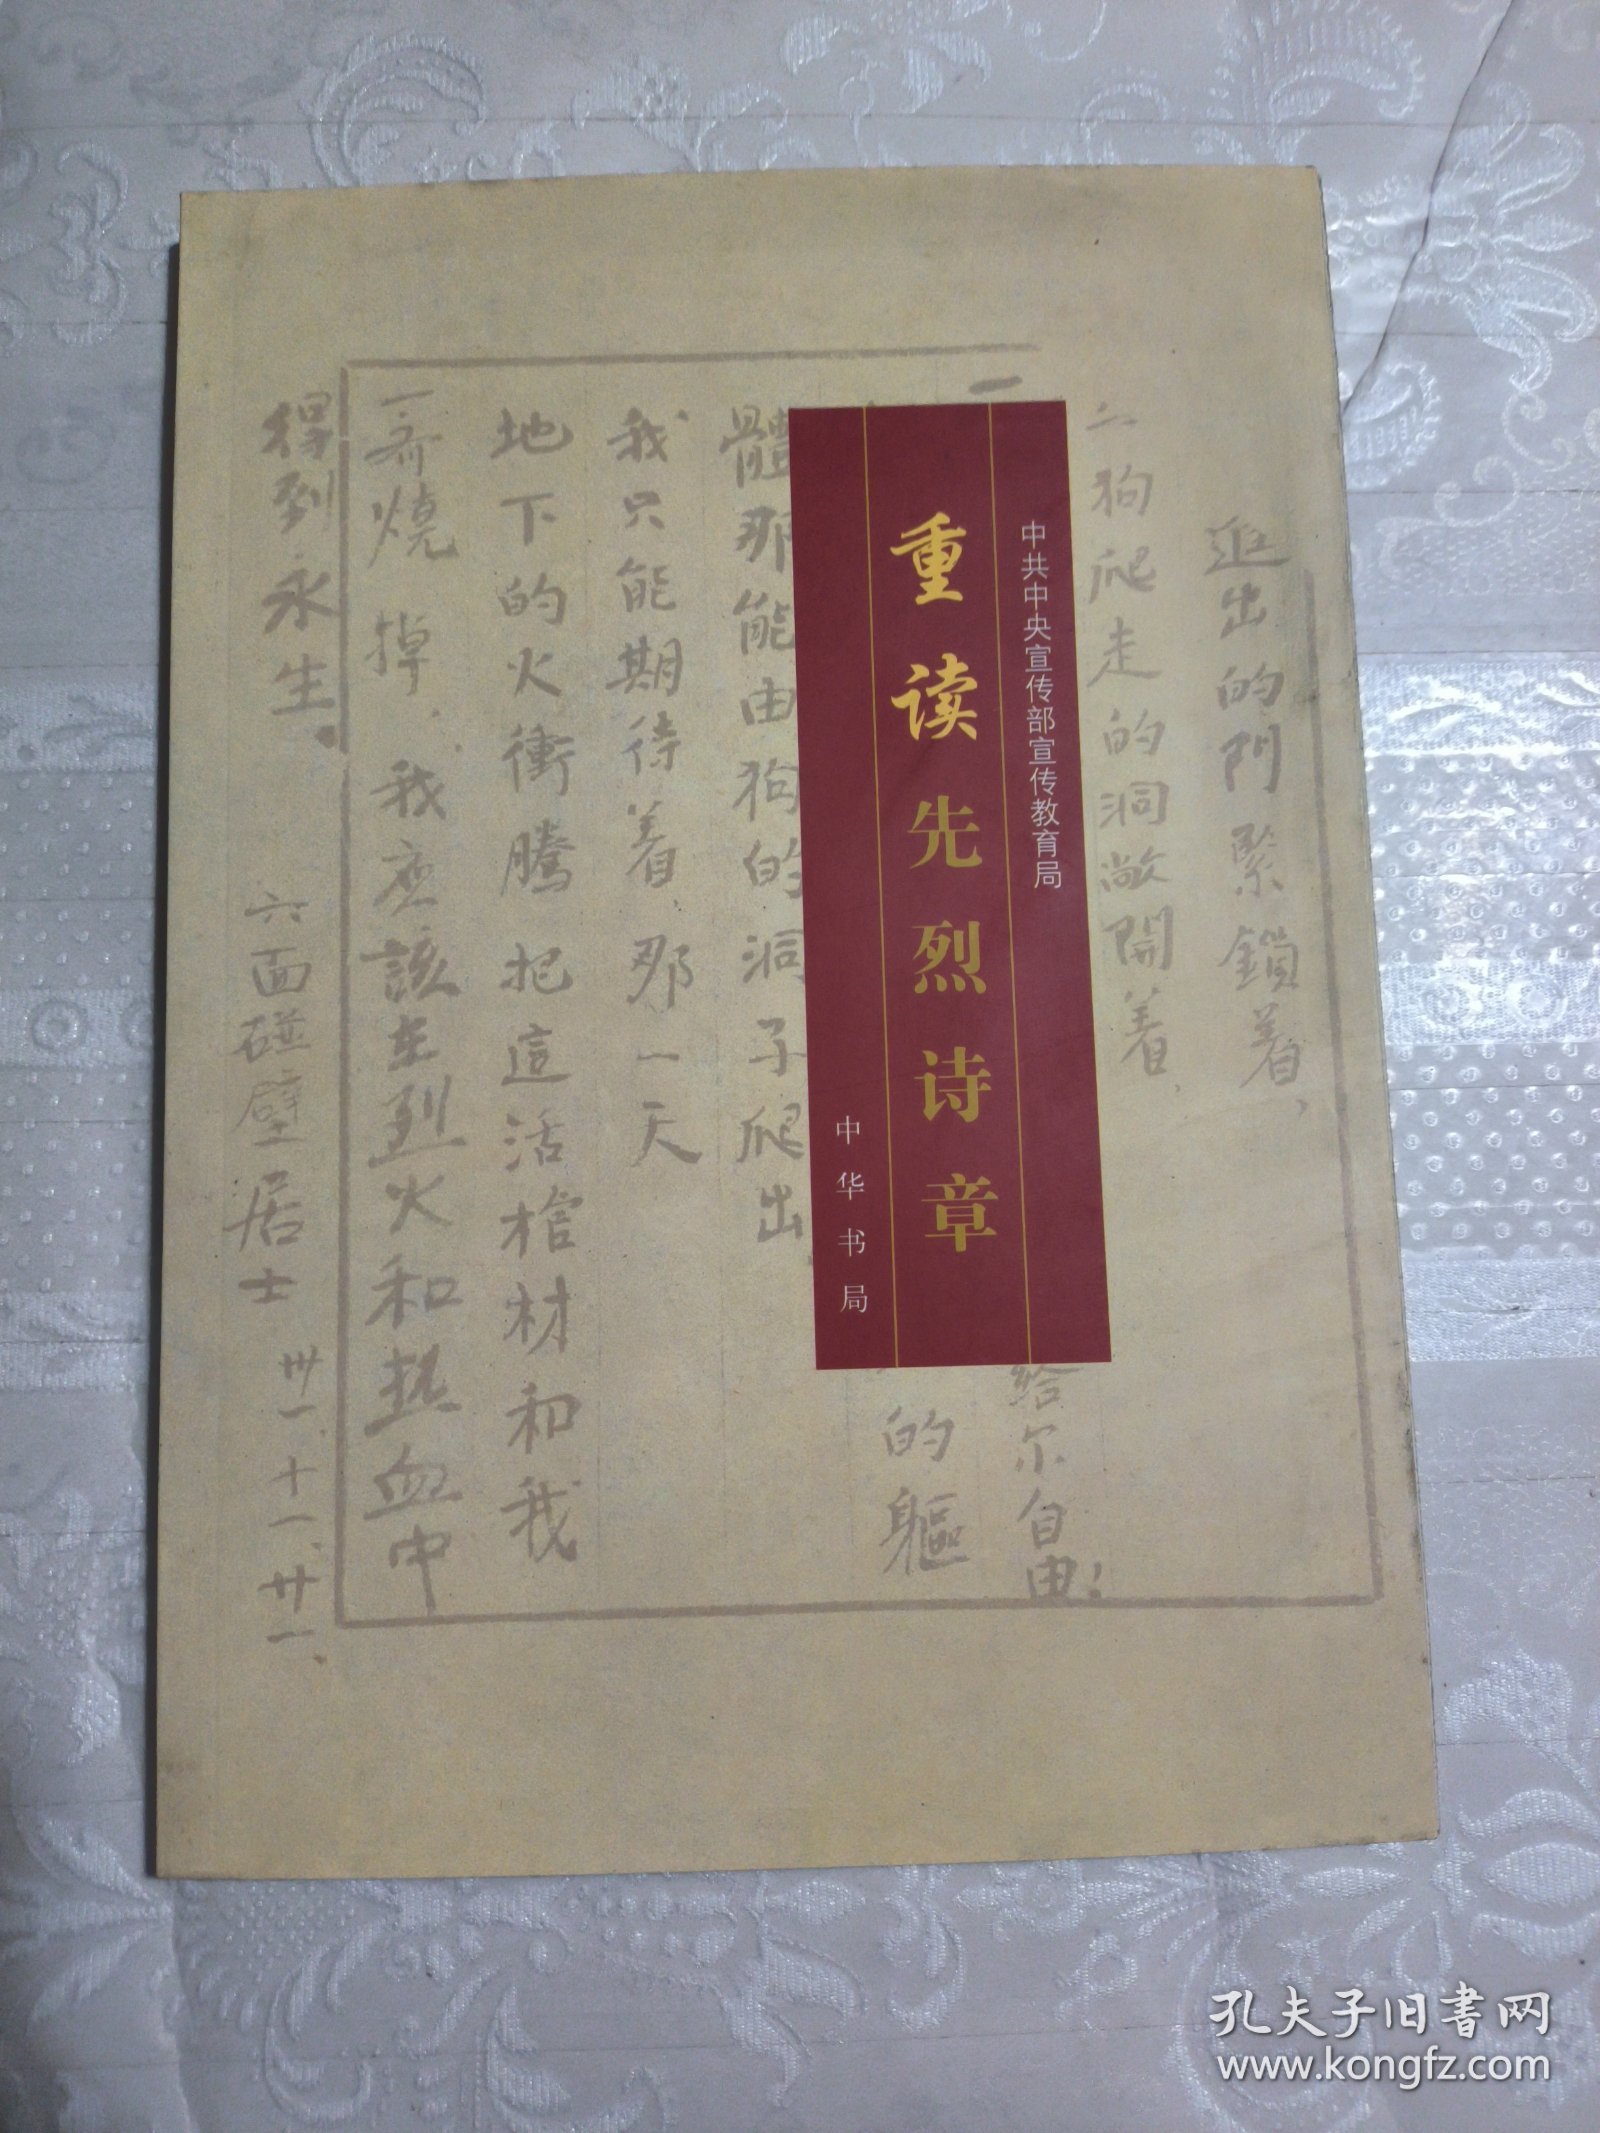 中共中央宣传部宣传教育局
重读先烈诗章
中华书局
进出的門緊鎖着,
狗爬走的洞敞開着,
一
給尔自由!
的軀
體那能由狗的洞子爬出
我只能期待着,那一天
地下的火衝騰把這活棺材和我
一齐燒掉,我应該在烈火和热血中
得到永生。
六面碰壁居士
卅一、十一、廿一、
孔夫子旧書网
www.kongfz.com